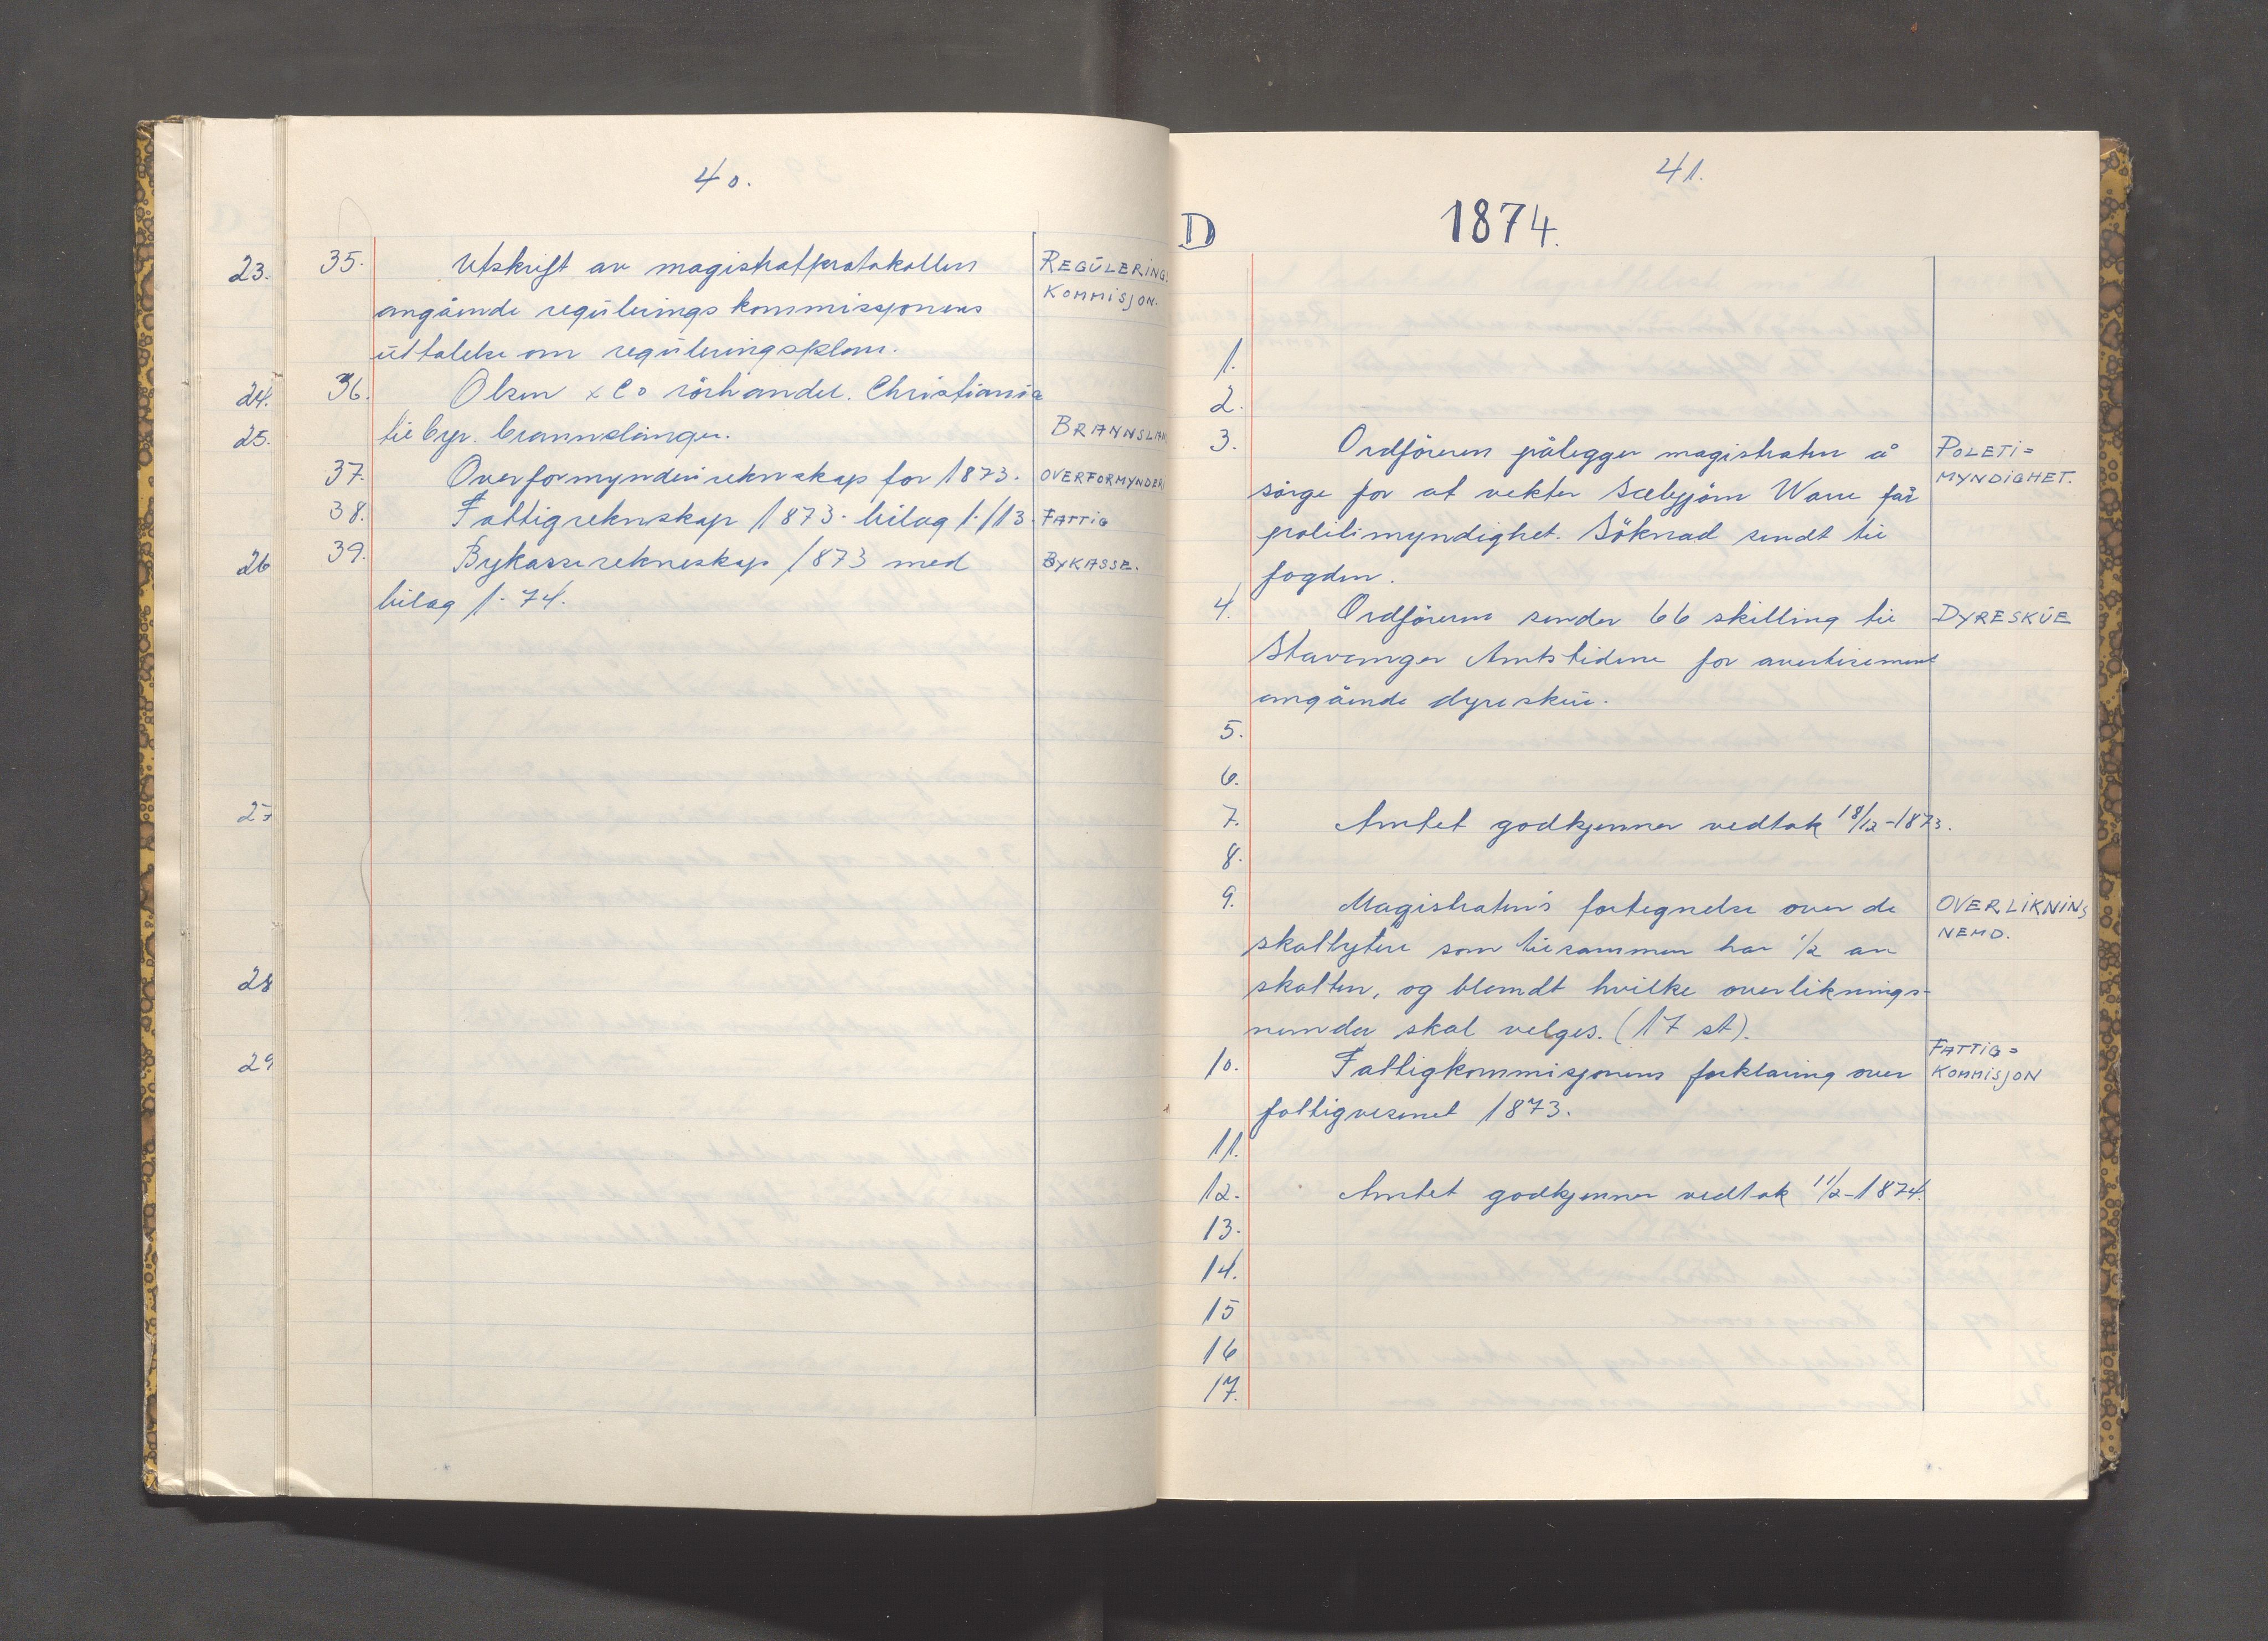 40.
23. 35. Utskrift av magistratprotokollen REGULERING.
angående reguleringskommissjonens KOMMISJON.
uttalelse om reguleringsplan.
24. 36. Olsen & Co rörhandel. Christiania
25. til byr. brannslanger. BRANNSLAN
37. Overformynderireknskap for 1873. OVERFORMYNDERI
38. Fattigreknskap 1873. bilag 1-113. FATTIG
26 39. Bykassereknskap 1873 med BYKASSE.
bilag 1-74.
27
28
29
41.
D 1874.
1.
2.
3. Ordföreren pålegger magistraten å POLETI=
sörge for at vekter Sæbjörn Warre får MYNDIGHET.
politimyndighet. Söknad sendt til
fogden.
4. Ordföreren sender 66 skilling til DYRESKUE
Stavanger Amtstidene for avertisement
angående dyreskue.
5.
6.
7. Amtet godkjenner vedtak 18/12-1873.
8.
9. Magistraten's fortegnelse over de OVERLIKNINS
skattytere som tilsammen har 1/2 av NEMD.
skatten, og blandt hvilke overliknings-
nemnda skal velges. (17 st).
10. Fattigkommisjonens forklaring over FATTIG=
fattigvesenet 1873. KOMMISJON
11.
12. Amtet godkjenner vedtak 11/2-1874.
13.
14.
15
16
17.